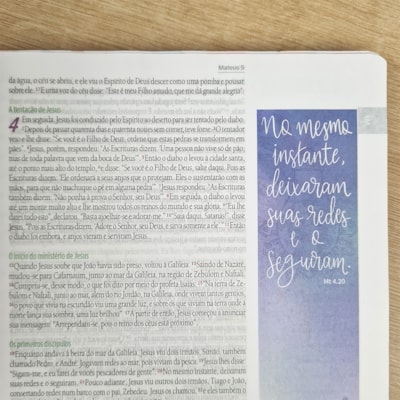 Mateus 5
da água, o céu se abriu, e ele viu o Espírito de Deus descer como uma pomba e pousar
sobre ele. E uma voz do céu disse: "Este é meu Filho amado, que me dá grande alegria".
A tentação de Jesus
4 Em seguida, Jesus foi conduzido pelo Espírito ao deserto para ser tentado pelo diabo.
Depois de passar quarenta dias e quarenta noites sem comer, teve fome. O tentador
veio e lhe disse: "Se você é o Filho de Deus, ordene que estas pedras se transformem em
pães". Jesus, porém, respondeu: "As Escrituras dizem: 'Uma pessoa não vive só de pão,
mas de toda palavra que vem da boca de Deus'". Então o diabo o levou à cidade santa,
até o ponto mais alto do templo, e disse: "Se você é o Filho de Deus, salte daqui. Pois as
Escrituras dizem: 'Ele ordenará a seus anjos que o protejam. Eles o sustentarão com as
mãos, para que não machuque o pé em alguma pedra'". Jesus respondeu: "As Escrituras
também dizem: 'Não ponha à prova o Senhor, seu Deus'". Em seguida, o diabo o levou
até um monte muito alto e lhe mostrou todos os reinos do mundo e sua glória. "Eu lhe
darei tudo isto", declarou. "Basta ajoelhar-se e adorar-me." "Saia daqui, Satanás!", disse
Jesus. "Pois as Escrituras dizem: 'Adore o Senhor, seu Deus, e sirva somente a ele'." Então
o diabo foi embora, e anjos vieram e serviram Jesus.
O início do ministério de Jesus
Quando Jesus soube que João havia sido preso, voltou à Galileia. Saindo de Nazaré,
mudou-se para Cafarnaum, junto ao mar da Galileia, na região de Zebulom e Naftali.
Cumpriu-se, desse modo, o que foi dito por meio do profeta Isaías: "Na terra de Zebulom
e Naftali, junto ao mar, além do rio Jordão, na Galileia, onde vivem tantos gentios,
o povo que vivia na escuridão viu uma grande luz, e sobre os que viviam na terra onde a
morte lança sua sombra, uma luz brilhou". A partir de então, Jesus começou a anunciar
sua mensagem: "Arrependam-se, pois o reino dos céus está próximo".
Os primeiros discípulos
Enquanto andava à beira do mar da Galileia, Jesus viu dois irmãos, Simão, também
chamado Pedro, e André. Jogavam redes ao mar, pois viviam da pesca. Jesus lhes disse:
"Sigam-me, e eu farei de vocês pescadores de gente". No mesmo instante, deixaram
suas redes e o seguiram. Pouco adiante, Jesus viu outros dois irmãos, Tiago e João,
consertando redes num barco com o pai, Zebedeu. Jesus os chamou, e eles também o
No mesmo
instante,
deixaram
suas redes
e o
seguiram.
Mt 4.20